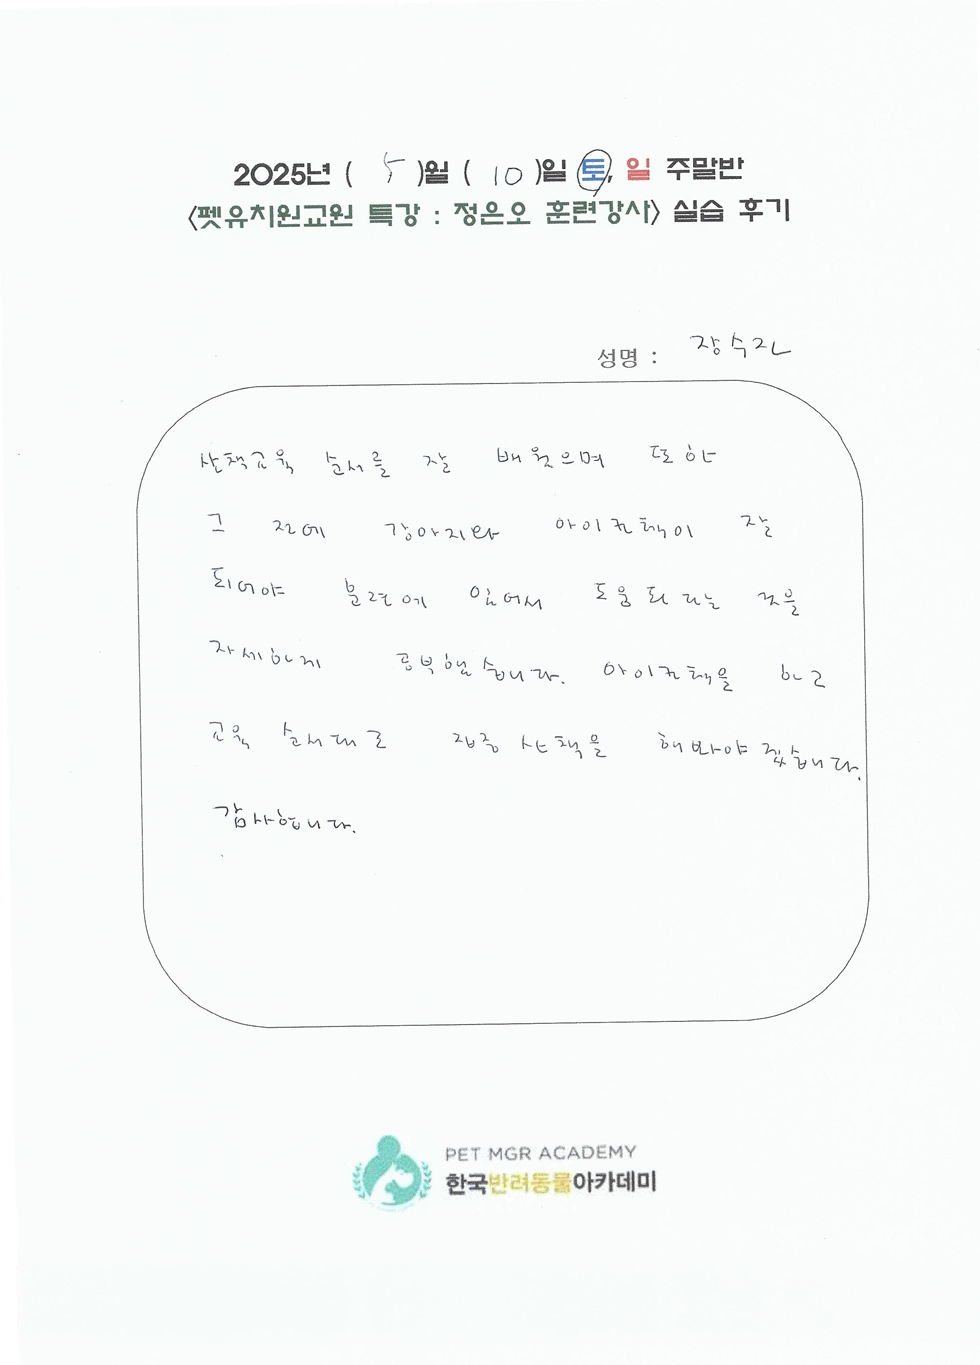 2025년 ( 5 )월 ( 10 )일 토, 일 주말반
<펫유치원교원 특강 : 정은오 훈련강사> 실습 후기
성명 : 장수진
산책교육 순서를 잘 배웠으며 또한
그 전에 강아지와 아이컨택이 잘
되어야 훈련에 있어서 도움 된다는 것을
자세하게 공부했습니다. 아이컨택을 하고
교육 순서대로 산책을 해봐야 겠습니다.
감사합니다.
PET MGR ACADEMY
한국반려동물아카데미